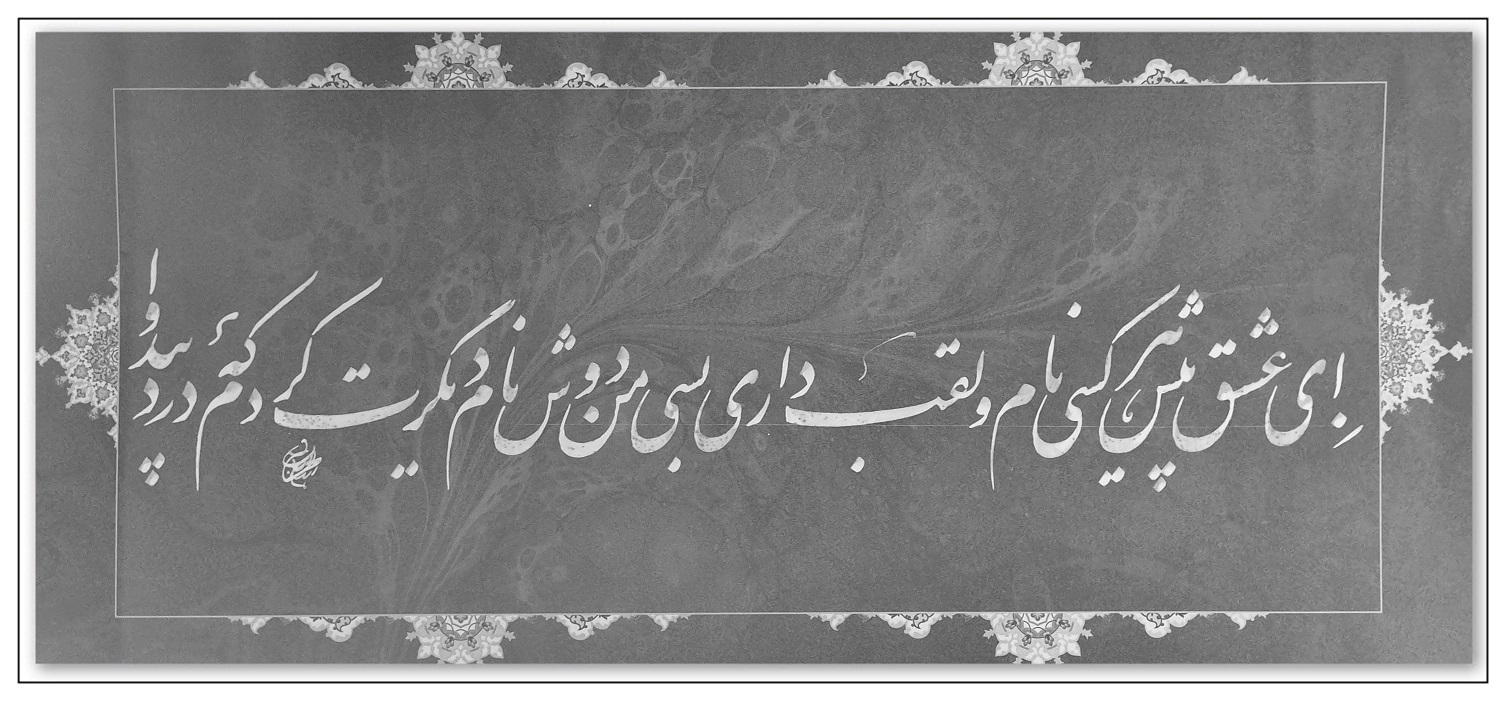 اِی عشق پیش هر کسی نام و لقب داری بسی من دوش نام دیگرت کردم که درد بی دوا